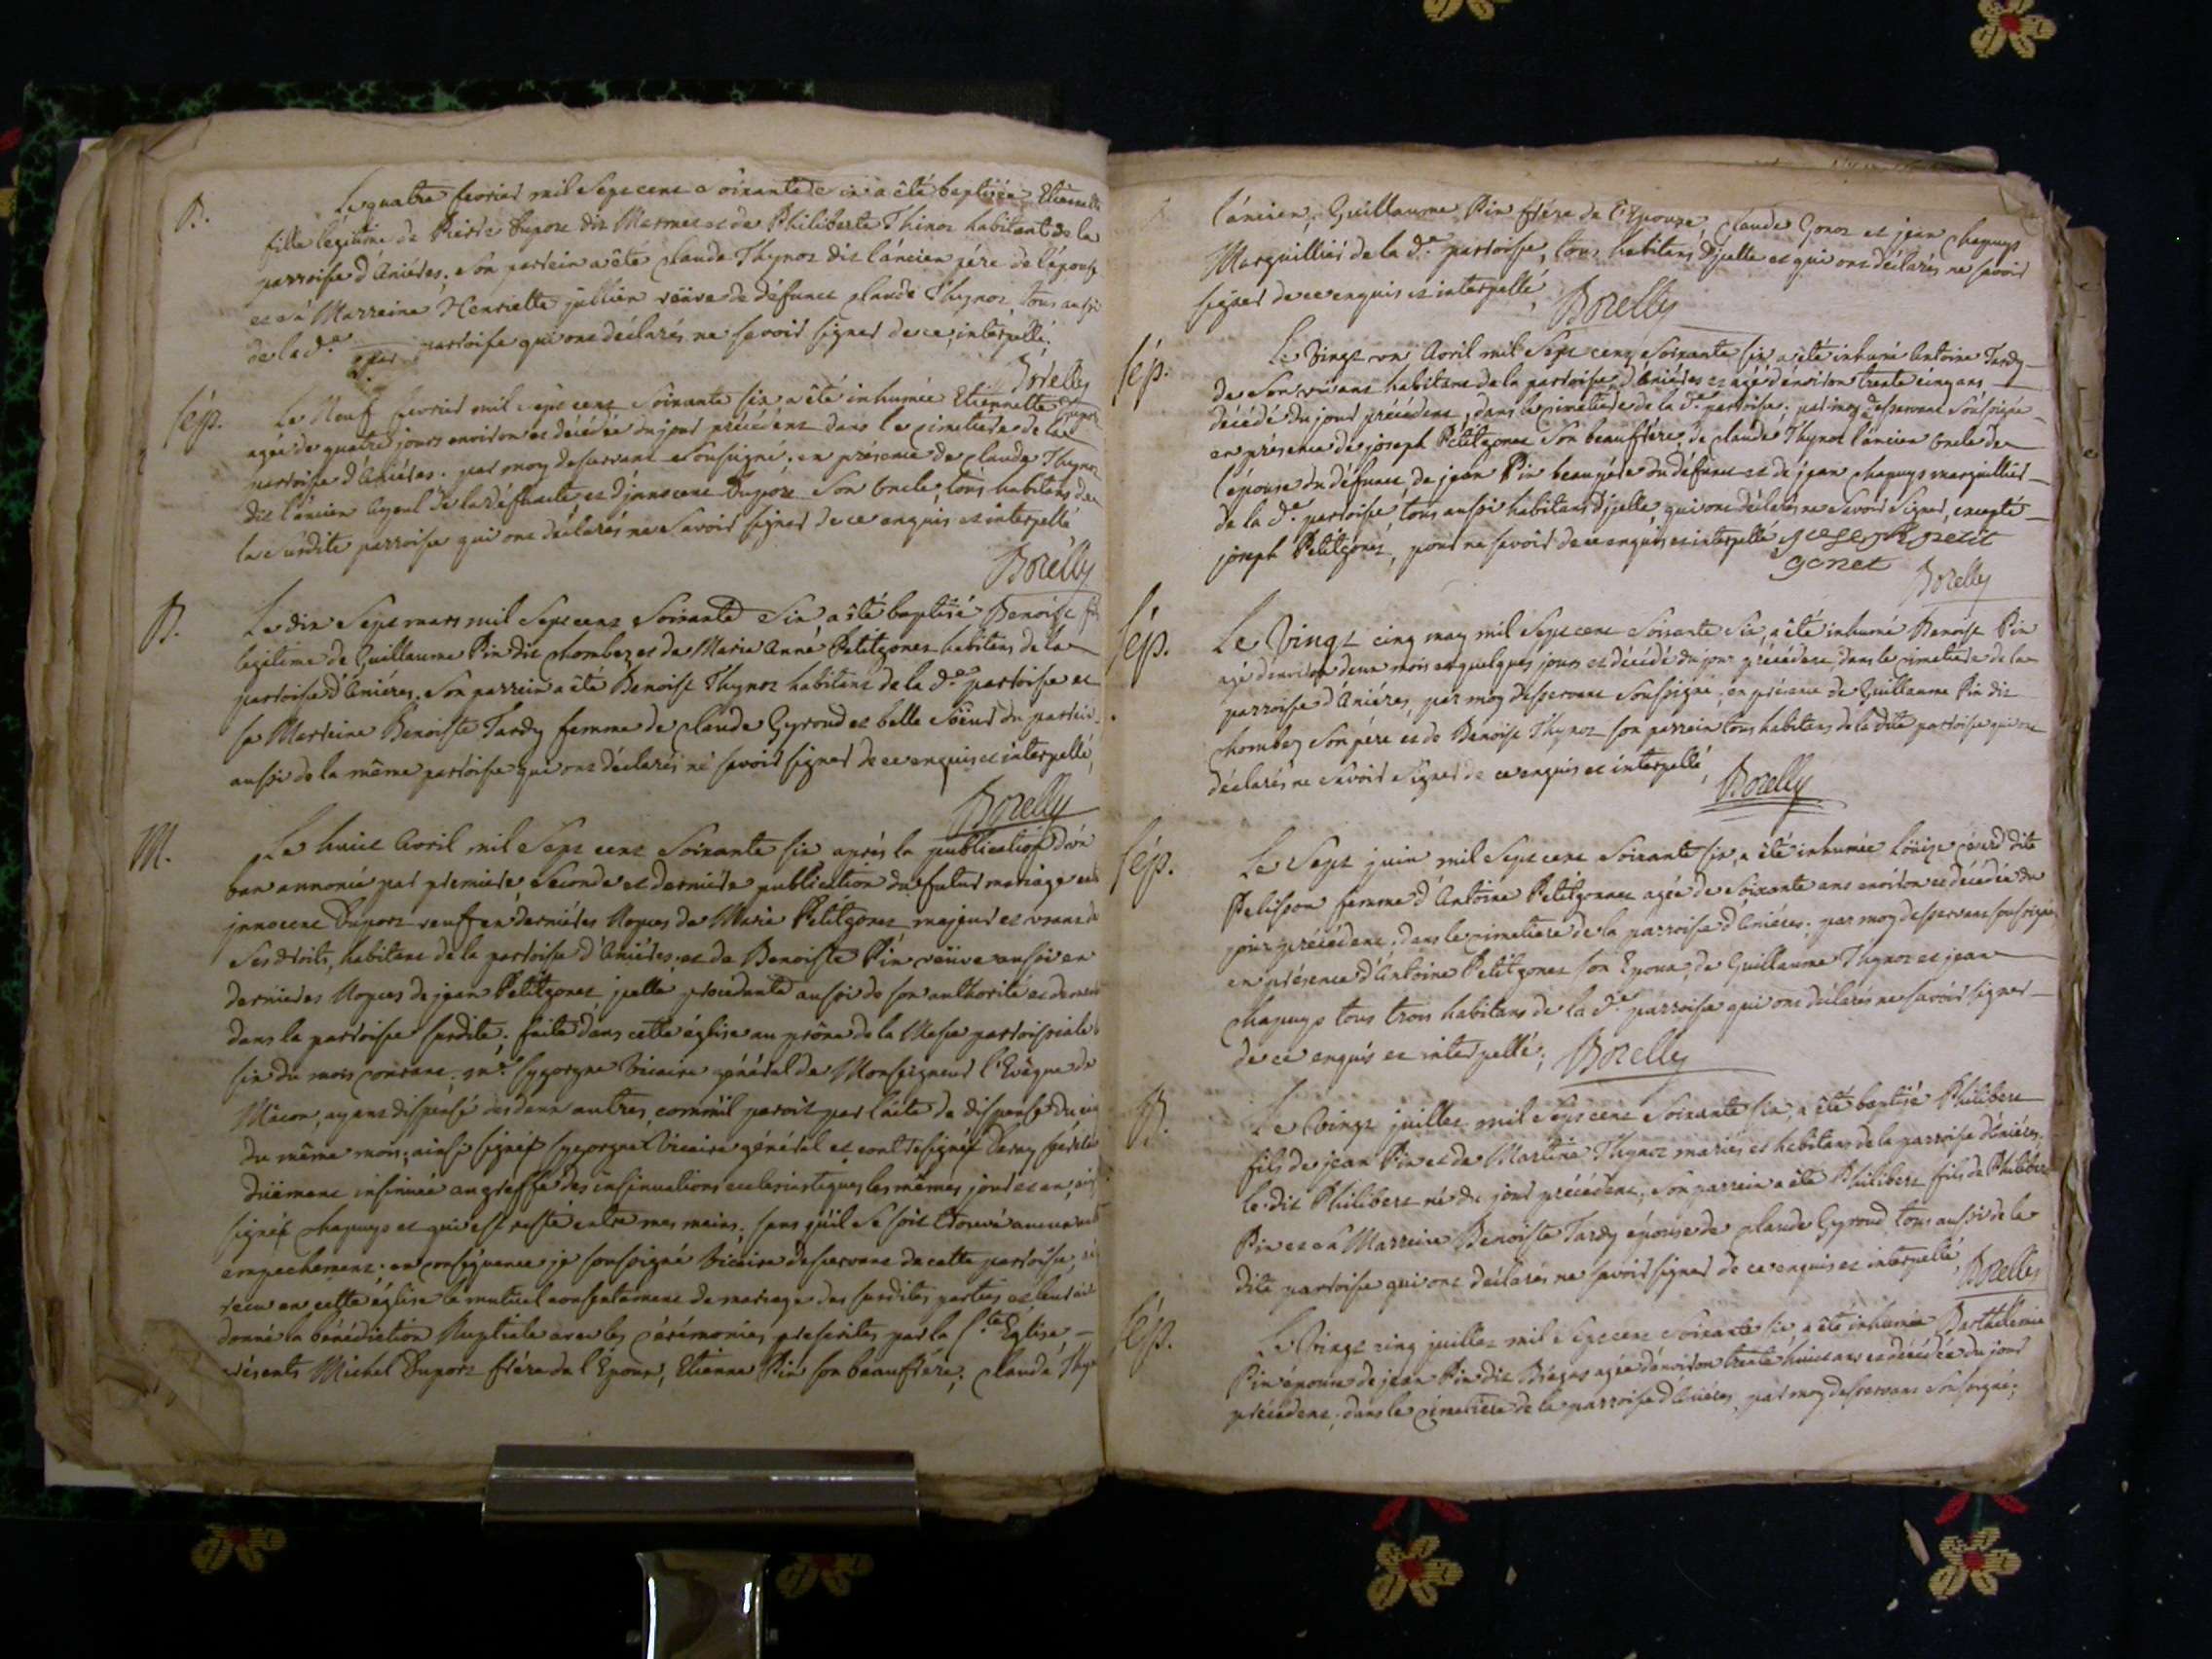 B. Le quatre fevrier mil Sept cent Soixante et six a été baptisée Etiennette
fille légitime de Pierre Duport dit Marmet et de Philiberte Thinot habitants de la
parroisse d'Aniéres; Son parrein a été Claude Thynot dit l'áncien pére de l'épouse
et sa Marreine Henriette jullien veüve de défunct Claude Thynot, tous aussi
de la de. parroisse qui ont déclarés ne savoir signer de ce, interpellé;
Borelly
sép. Le Neuf fevrier mil Sept cent Soixante six a été inhumée Etiennette Duport
agée de quatre jours environ et décédée du jour précédent dans le cimetiere de la
parroisse d'Aniéres. par moy desservant Soussigné; en présence de Claude Thynot
dit l'áncien Ayeul de la défuncte, et d'jnnocent Duport Son Oncle, tous habitans de
la Susdite parroisse qui ont déclarés ne Savoir signer de ce enquis et interpellé
Borelly
B. Le dix Sept mars mil Sept cent Soixante Six a été baptisé Benoist fils
legitime de Guillaume Pin dit Chombez et de Marie Anne Petitgonet habitans de la
parroisse d'Aniéres. Son parrein a été Benoist Thynot habitant de la de. parroisse et
sa Marreine Benoiste Tardy femme de Claude Gyroud et belle Soeur du parrein
aussi de la même parroisse qui ont déclarés ne savoir signer de ce enquis et interpellé,
Borelly
M. Le huit Avril mil Sept cent Soixante six aprés la publication d'un
ban annoncé par premiere, Seconde et derniére publication du futur mariage entre
jnnocent Duport veuf en derniéres Nopces de Marie Petitgonet majeur et usant de
Ses droits, habitant de la parroisse d'Aniéres; et de Benoiste Pin veüve aussi en
derniéres Nopces de jean Petitgonet jcelle procédante aussi de son authorité et demeurant
dans la parroisse susdite; faite dans cette église au prône de la Messe parroissiale le
six du mois courant. mr. Sygorgne Vicaire général de Monseigneur l'Evêque de
Mâcon, ayant dispensé des deux autres, comm'il paroit par l'acte de dispense du cinq
du même mois; ainsi signé Sygorgne Vicaire général et contresigné
düement insinuée au greffe des insinuations ecclesiastiques les mêmes jour et an; ainsi
signé Chapuys et qui est resté entre mes mains; sans qu'il Se soit trouvé aucun
empechement; en conséquence je soussigné Vicaire desservant de cette parroisse, ai
recu en cette église le mutuel consentement de mariage des susdites parties et leur ai
donné la bénédiction Nuptiale avec les cérémonies prescrites par la Ste. Eglise
présents Michel Duport frére de l'Epoux, Etienne Pin son beaufrére; Claude Thynot
l'áncien; Guillaume Pin frére de l'Epouse, Claude Gonot et jean Chapuys
Marguillier de la de. parroisse, tous habitans d'jcelle et qui ont déclarés ne savoir
signer de ce enquis et interpellé, Borelly
sép. Le Vingt un Avril mil Sept cent Soixante six a été inhumé Antoine Tardy
de Son vivant habitant de la parroisse d'Aniéres et agé d'environ trente cinq ans
décédé du jour précédent, dans le cimetiere de la de. parroisse; par moy desservant Soussigné
en présence de joseph Petitgonet Son beaufrére, de Claude Thynot l'áncien Oncle de
l'épouse du défunct, de jean Pin beaupére du défunct et de jean Chapuys marguillier
de la de. parroisse, tous aussi habitans d'jcelle qui ont déclarés ne Savoir Signer, excepté
joseph Petitgonet, pour ne savoir de ce enquis et interpellé joseph petit
gonet Borelly
sép. Le Vingt cinq may mil Sept cent Soixante Six, a été inhumé Benoist Pin
agé d'environ deux mois et quelques jours et décédé du jour précédent dans le cimetiere de la
parroisse d'Aniéres, par moy desservant Soussigné; en présence de Guillaume Pin dit
Chombez Son pére et de Benoist Thynot son parrein tous habitans de la dite parroisse qui ont
déclarés ne Savoir Signer de ce enquis et interpellé, Borelly
sép. Le Sept juin mil Sept cent Soixante six, a été inhumée Loüise dite
Pelisson femme d'Antoine Petitgonet agée de soixante ans environ et décédée du
jour précédent, dans le cimetiere de la parroisse d'Aniéres; par moy desservant soussigné
en présence d'Antoine Petitgonet son Epoux, de Guillaume Thynot et jean
Chapuys tous trois habitans de la de. parroisse qui ont déclarés ne savoir signer
de ce enquis et interpellé; Borelly
B. Le Vingt juillet mil Sept cent Soixante six, a été baptisé Philibert
fils de jean Pin et de Martine Thynot mariés et habitans de la parroisse d'Aniéres,
le dit Philibert né du jour précédent, Son parrein a été Philibert fils de Philibert
Pin et sa Marreine Benoiste Tardy épouse de Claude Gyroud tous aussi de la
dite parroisse qui ont déclarés ne savoir signer de ce enquis et interpellé, Borelly
sép. Le Vingt cinq juillet mil Sept cent Soixante six a été inhumée Barthélemie
Pin épouse de jean Pin dit agée d'environ trente huit ans et décédée du jour
précédent, dans le cimetiere de la parroisse d'Aniéres, par moy desservant Soussigné;